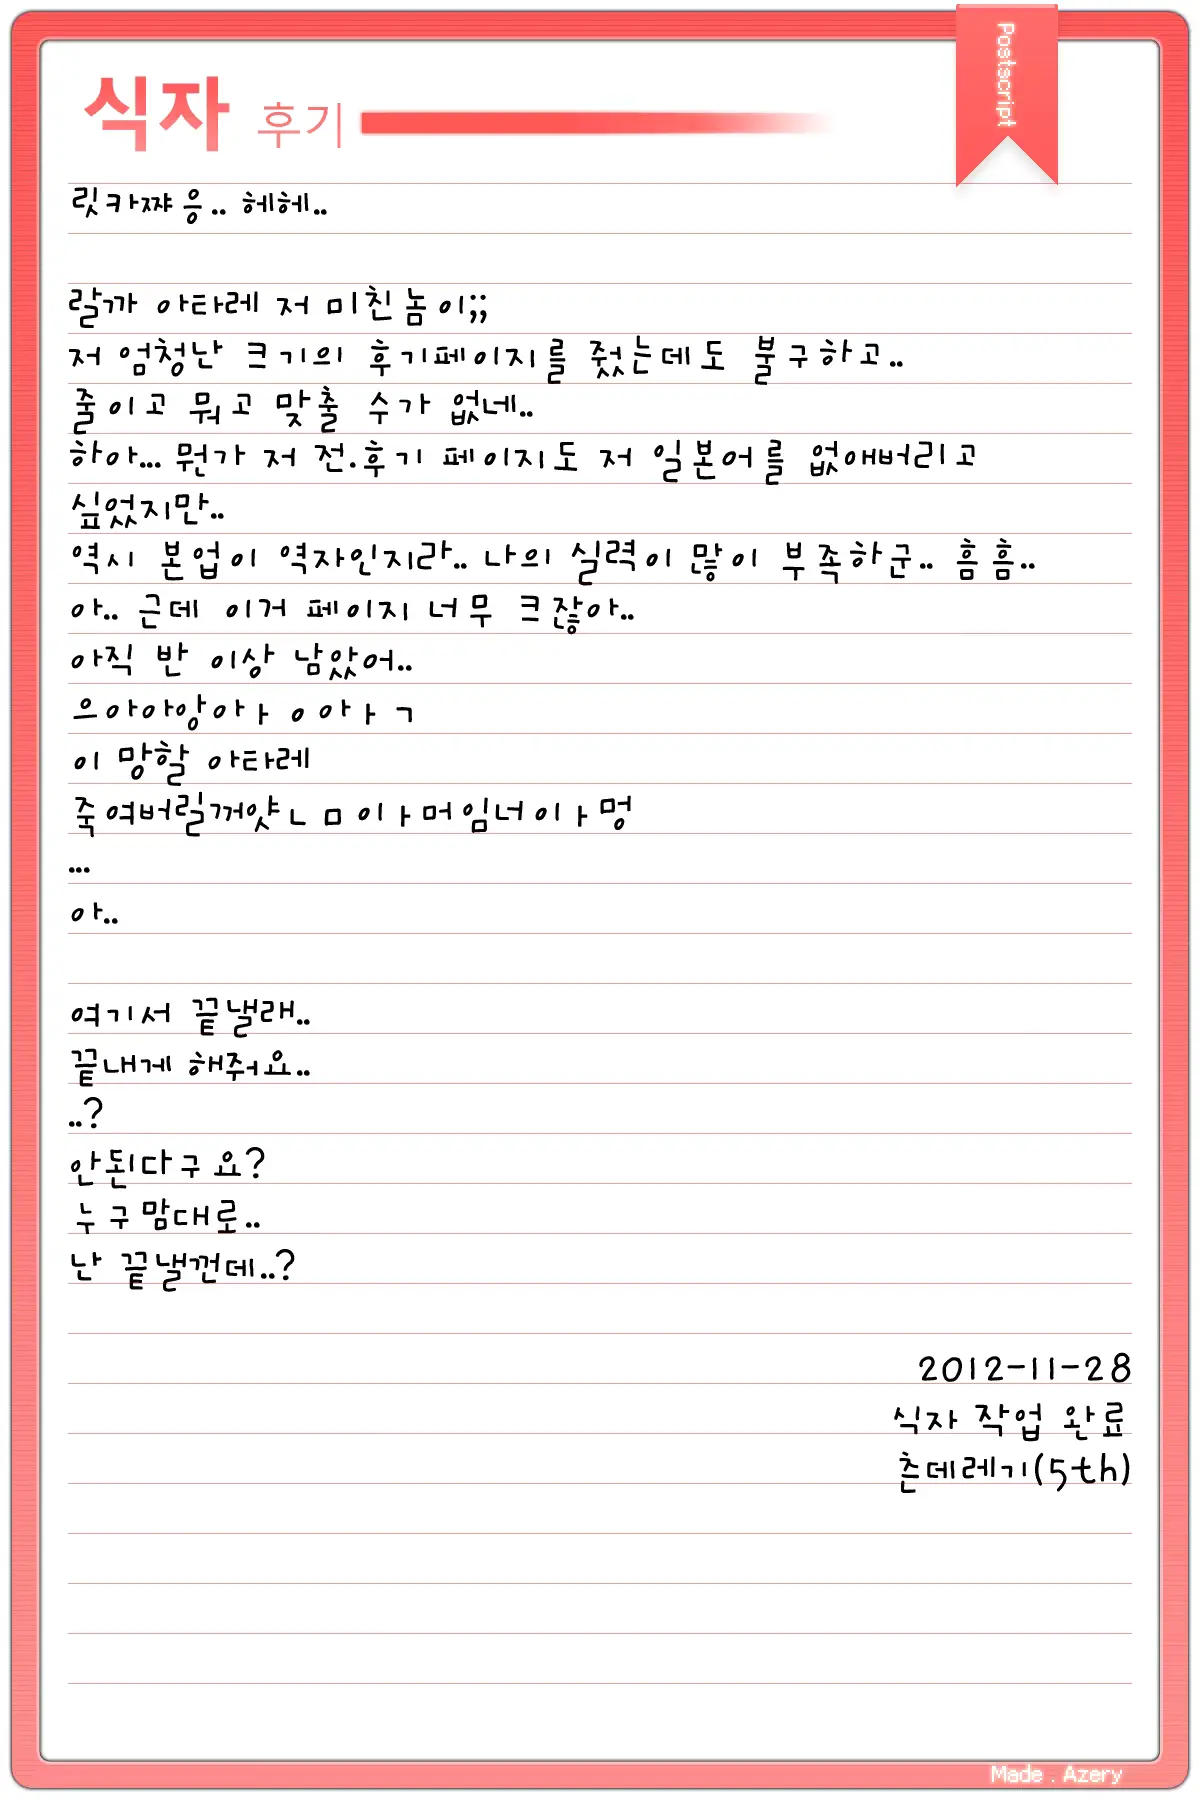 Postscript
식자 후기
릿카쨔응.. 헤헤..
랄까 아타레 저 미친놈이;;
저 엄청난 크기의 후기페이지를 줬는데도 불구하고..
줄이고 뭐고 맞출 수가 없네..
하아... 뭔가 저 전.후기 페이지도 저 일본어를 없애버리고
싶었지만..
역시 본업이 역자인지라.. 나의 실력이 많이 부족하군.. 흠흠..
아.. 근데 이거 페이지 너무 크잖아..
아직 반 이상 남았어..
으아아앙아ㅏㅇ아ㅏㄱ
이 망할 아타레
죽여버릴꺼얏ㄴㅁ이ㅏ머임너이ㅏ멍
...
아..
여기서 끝낼래..
끝내게 해줘요..
..?
안된다구요?
누구맘대로..
난 끝낼껀데..?
2012-11-28
식자 작업 완료
츤데레기(5th)
Made . Azery